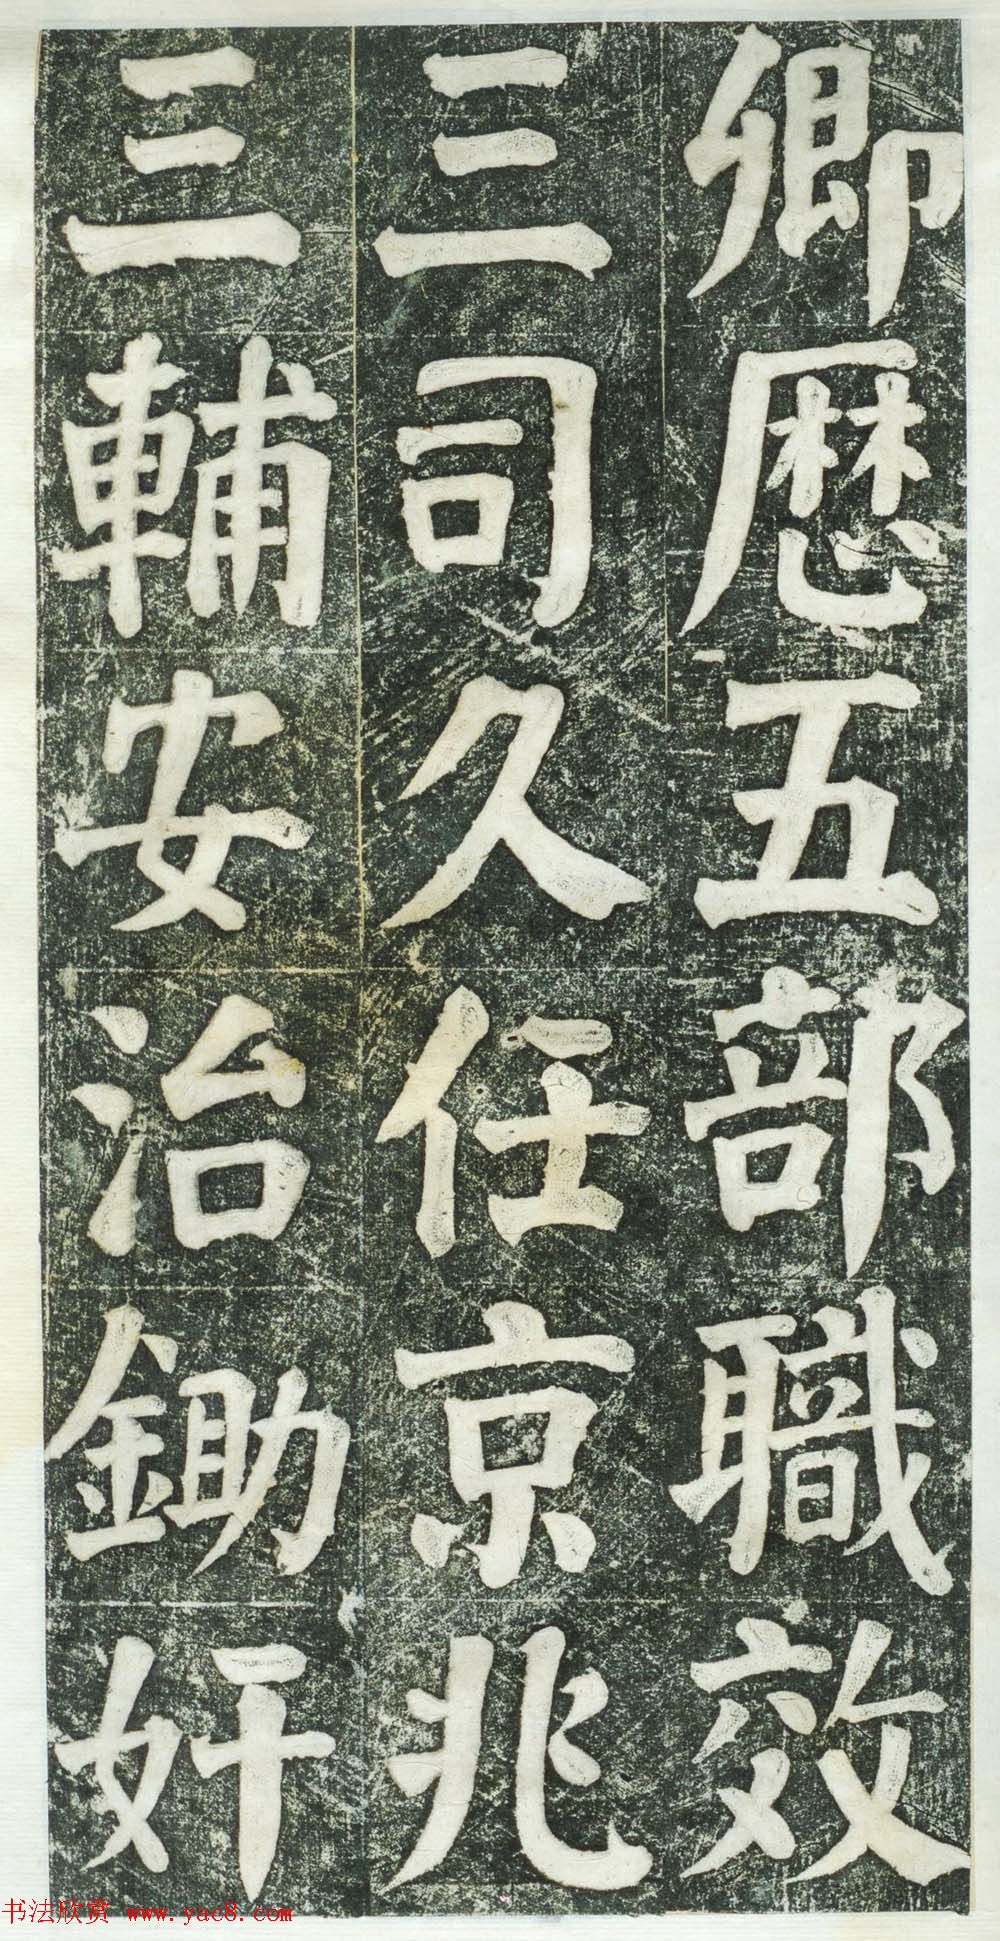 卿歷五部職效
三司久任京兆
三輔安治鋤奸
书法欣赏 www.yac8.com